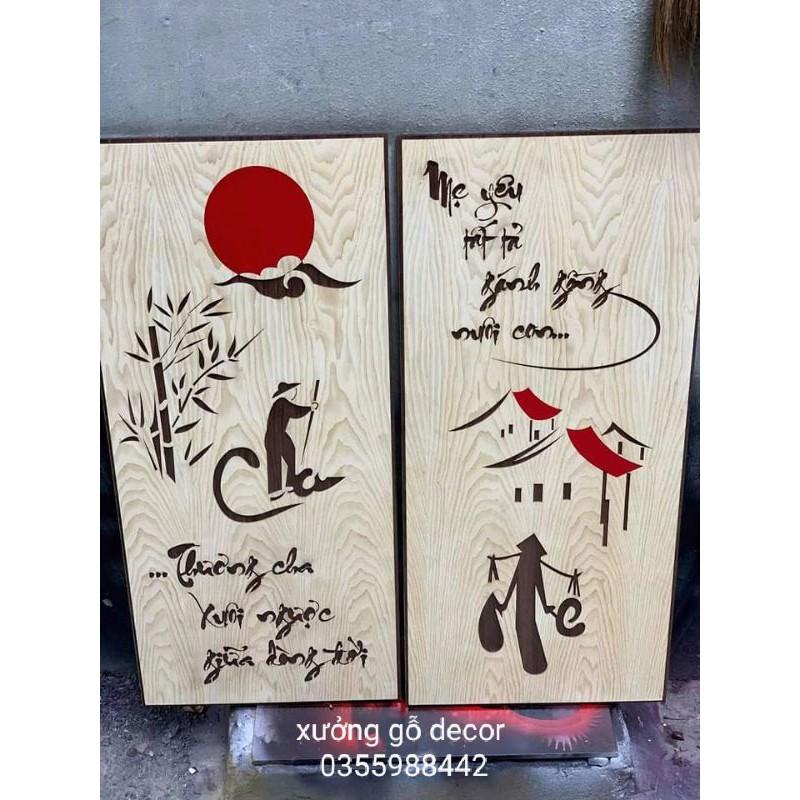 Cha
...Thương cha
Xuôi ngược
giữa dòng đời
Mẹ yêu
tất tả
gánh gồng
nuôi con...
Mẹ
xưởng gỗ decor
0355988442